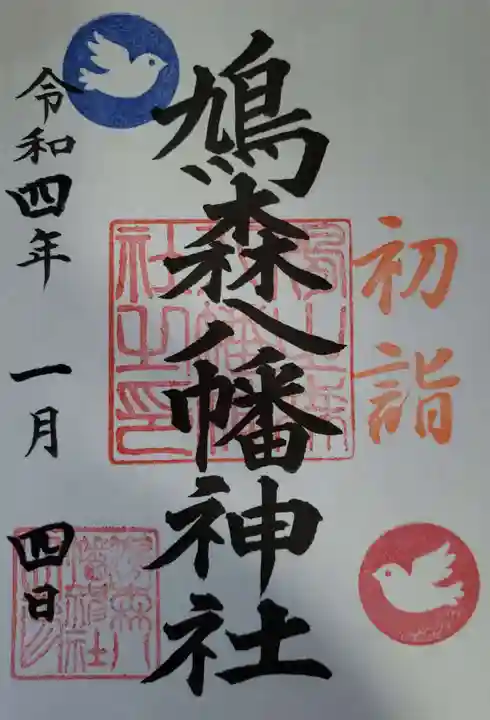 初詣
鳩森八幡神社
令和四年 一月 四日